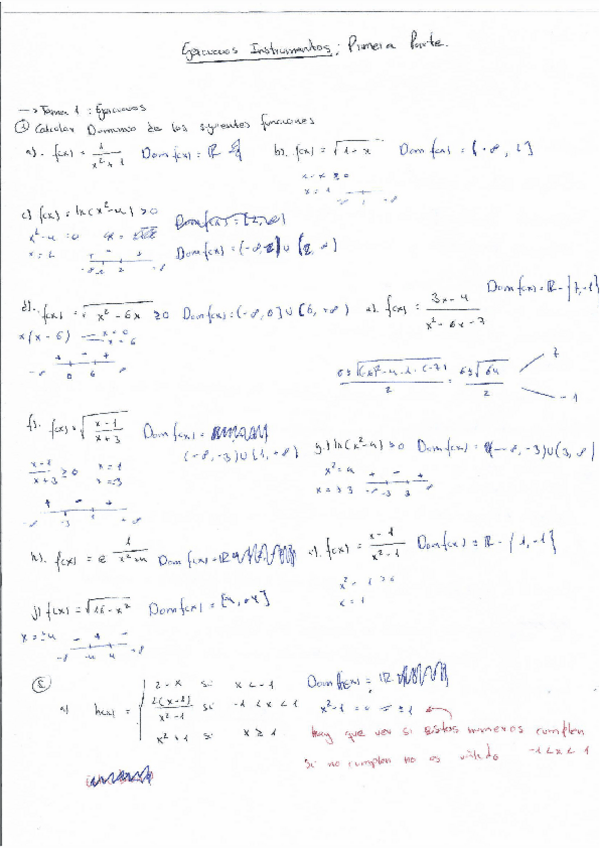 Ejercicios Instrumentos; Primera Parte.
-> Tema 1: Ejercicios
① Calcular Dominio de las siguientes funciones
a). f(x) = 1/(x²+1) Dom f(x) = R
b). f(x) = √(1-x) Dom f(x) = (-∞, 1]
x = 1
c) f(x) = ln(x²-4) > 0
x² - 4 = 0
x = 2
Dom f(x) = (-∞, 2) ∪ (2, ∞)
d). f(x) = √(x² - 6x) ≥ 0 Dom f(x) = (-∞, 0] ∪ [6, +∞)
x(x - 6) x = 0
x = 6
-∞ 0 6
e). f(x) = (3x-4)/(x²-6x-7) Dom f(x) = R - {7, -1}
6±√64 / 2
7
-1
f). f(x) = √((x-1)/(x+3)) Dom f(x) =
(-∞, -3) ∪ (1, +∞)
(x-1)/(x+3) ≥ 0 x = 1
x = -3
-∞ -3 1 +∞
g). ln(x²-9) > 0 Dom f(x) = (-∞, -3) ∪ (3, ∞)
x² = 9
x = ±3
-∞ -3 3 ∞
h). f(x) = e^(1/(x²+4)) Dom f(x) = R
i). f(x) = (x-1)/(x²-1) Dom f(x) = R - {1, -1}
x = 1
j) f(x) = √(16-x²) Dom f(x) = [4, -4]
x = ±4
-∞ -4 4 ∞
②
a) h(x) = 2-x si x < -1 Dom f(x) = R
2(x-8)/(x²-1) si -1 < x < 1 x²-1 = 0 = ±1
x²+1 si x ≥ 1
Hay que ver si estos numeros cumplen
si no cumplen no es válido -1 < x < 1